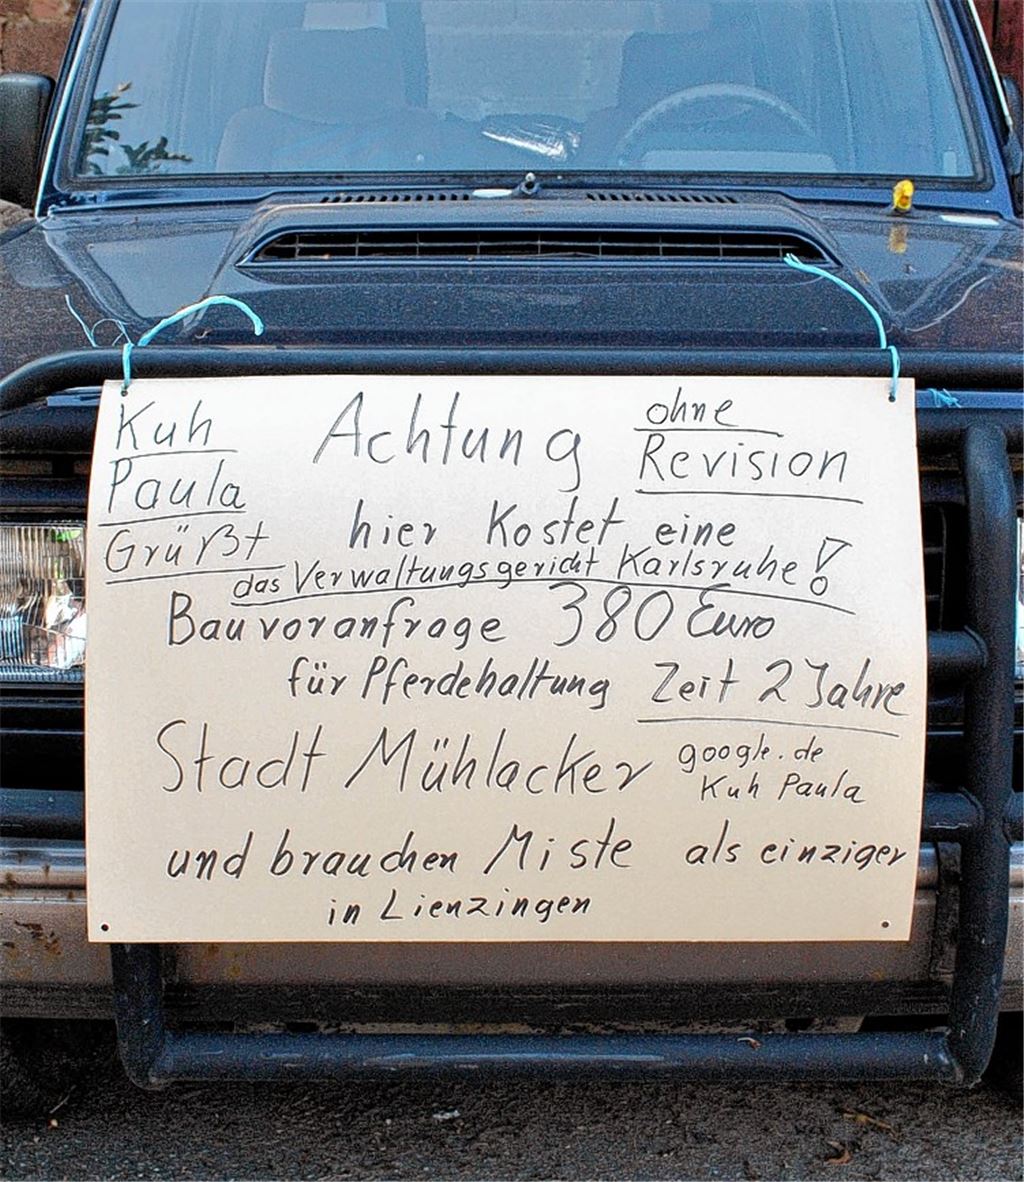 Kuh
Paula
Grüßt
Achtung
ohne
Revision
hier Kostet eine
das Verwaltungsgericht Karlsruhe!
Bauvoranfrage 380 Euro
für Pferdehaltung Zeit 2 Jahre
Stadt Mühlacker
google.de
Kuh Paula
und brauchen Miste als einziger
in Lienzingen